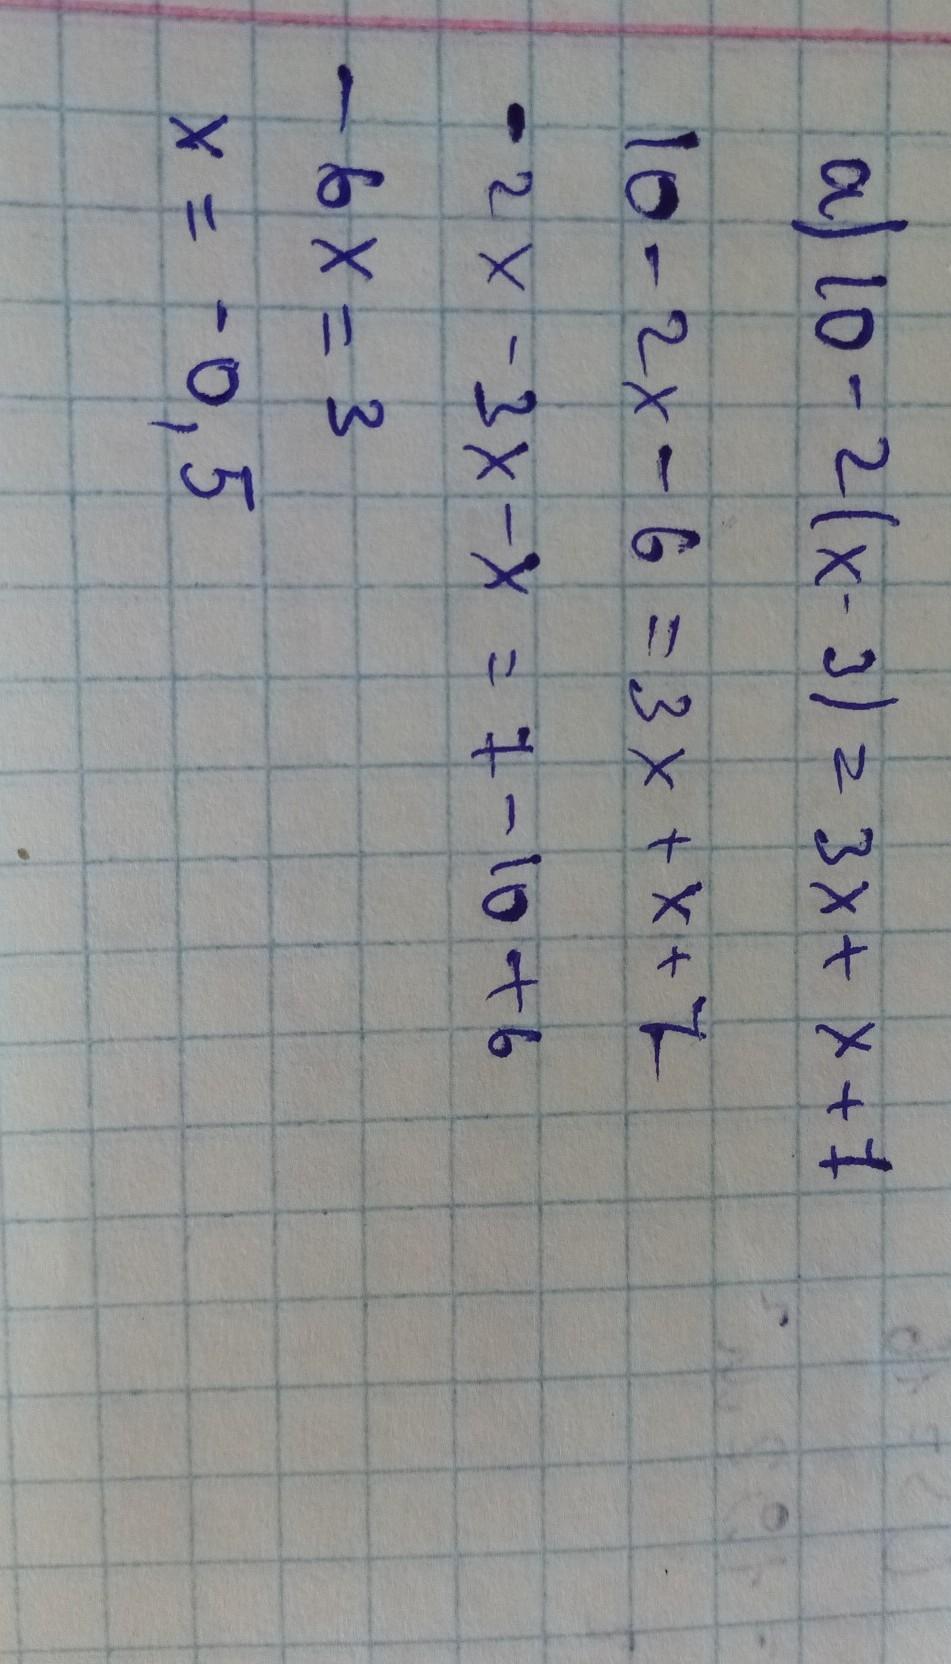 а) 10 - 2(x - 3) = 3x + x + 7
10 - 2x - 6 = 3x + x + 7
- 2x - 3x - x = 7 - 10 + 6
- 6x = 3
x = - 0,5